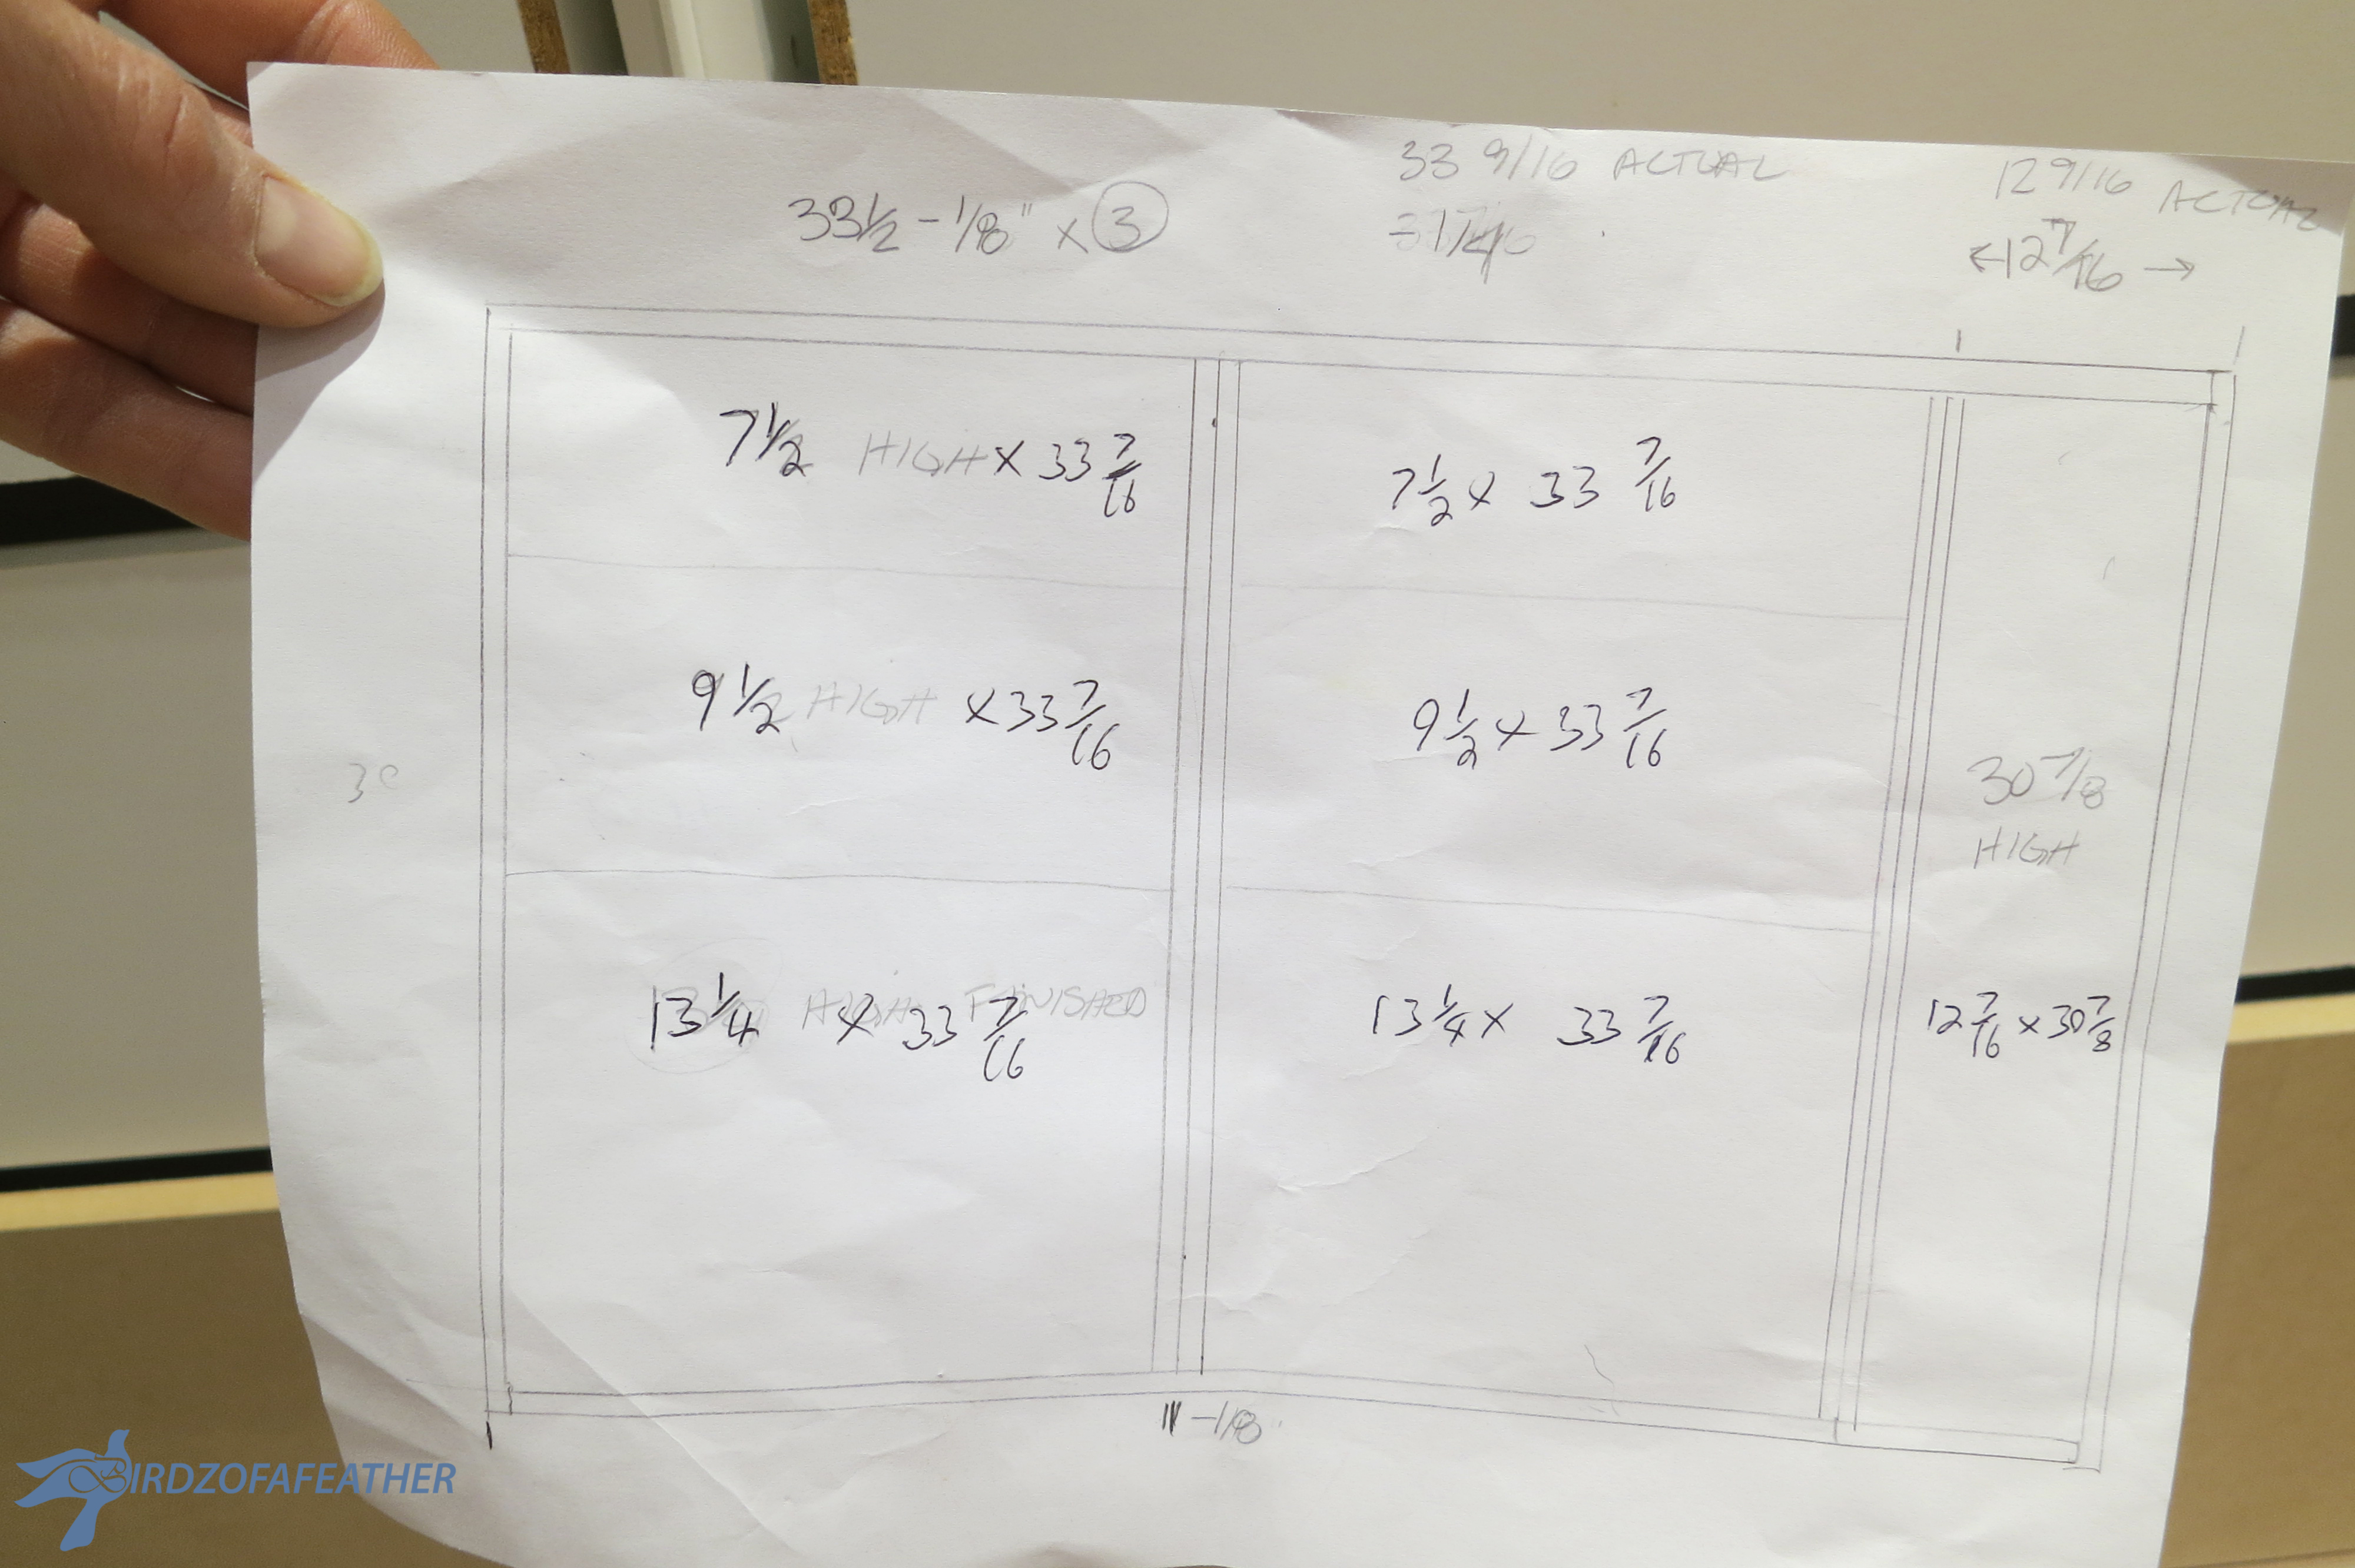 33 9/16 ACTUAL
12 9/16 ACTUAL
33 1/2 - 1/8" x 3
- 1/4
←12 7/16→
7 1/2 HIGH x 33 7/16
7 1/2 x 33 7/16
9 1/2 HIGH x 33 7/16
9 1/2 x 33 7/16
30
30 7/8
HIGH
13 1/4 HIGH x 33 7/16 FINISHED
13 1/4 x 33 7/16
12 7/16 x 30 7/8
-1/8
BIRDZOFAFEATHER